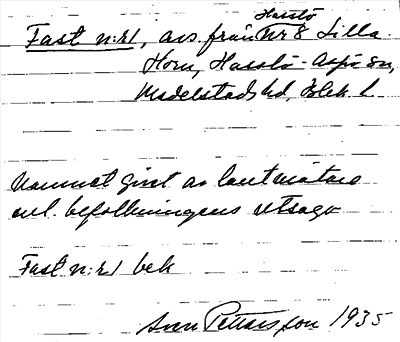 Hasslö
Fast n:r 1, avs. från nr 8 Lilla
Horn, Hasslö - Aspö sn,
Medelstads hd, Blek. l.
Namnet givet av lantmätare
enl. befolkningens utsago
Fast n:r 1 beb
Sven Pettersson 1935